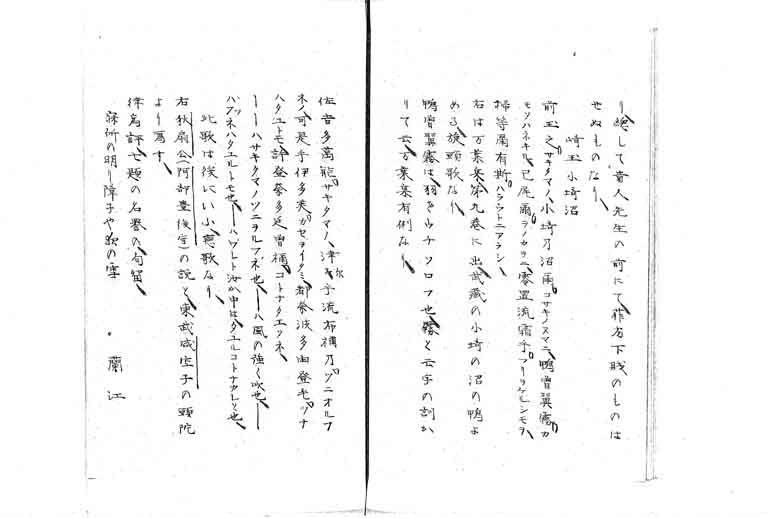 り總して貴人先生の前にて非右下賤のものは
せぬものなり
埼玉小埼沼
前玉之サキタマノ小埼乃沼爾コサキノヌマニ鴨曽翼霧カ
モソハネキル己尾爾ヲノカヲニ零置流霜乎フリヲケルシモヲ
掃等爾有斯ハラフトニアラシ
右は万葉集第九巻に出武蔵の小埼の沼の鴨よ
める旋頭歌なり
鴨曽翼霧は羽をウチソロフ也霧と云字の訓か
りて云万葉集有例なり
佐吉多萬能サキタマノ津爾乎流布禰乃ツニオルフ
ネノ可是乎伊多美カセヲイタミ都奈波多由登毛ツナ
ハタユトモ許登奈多延曽禰コトナタエソネ
ーーハサキタマノツニヲルフネ也ーーハ風の強く吹也ーー
ハツネハタユルトモ也ーーハワレト汝か中はタユルコトナカレと也
此歌は後にいふ恋歌なり
右秋扇公(阿部豊後守)の説と東武成宝子の頭院
より写す
俳名評七題の名巻の句留
寐所の明り障子や歌の雪
・蘭江